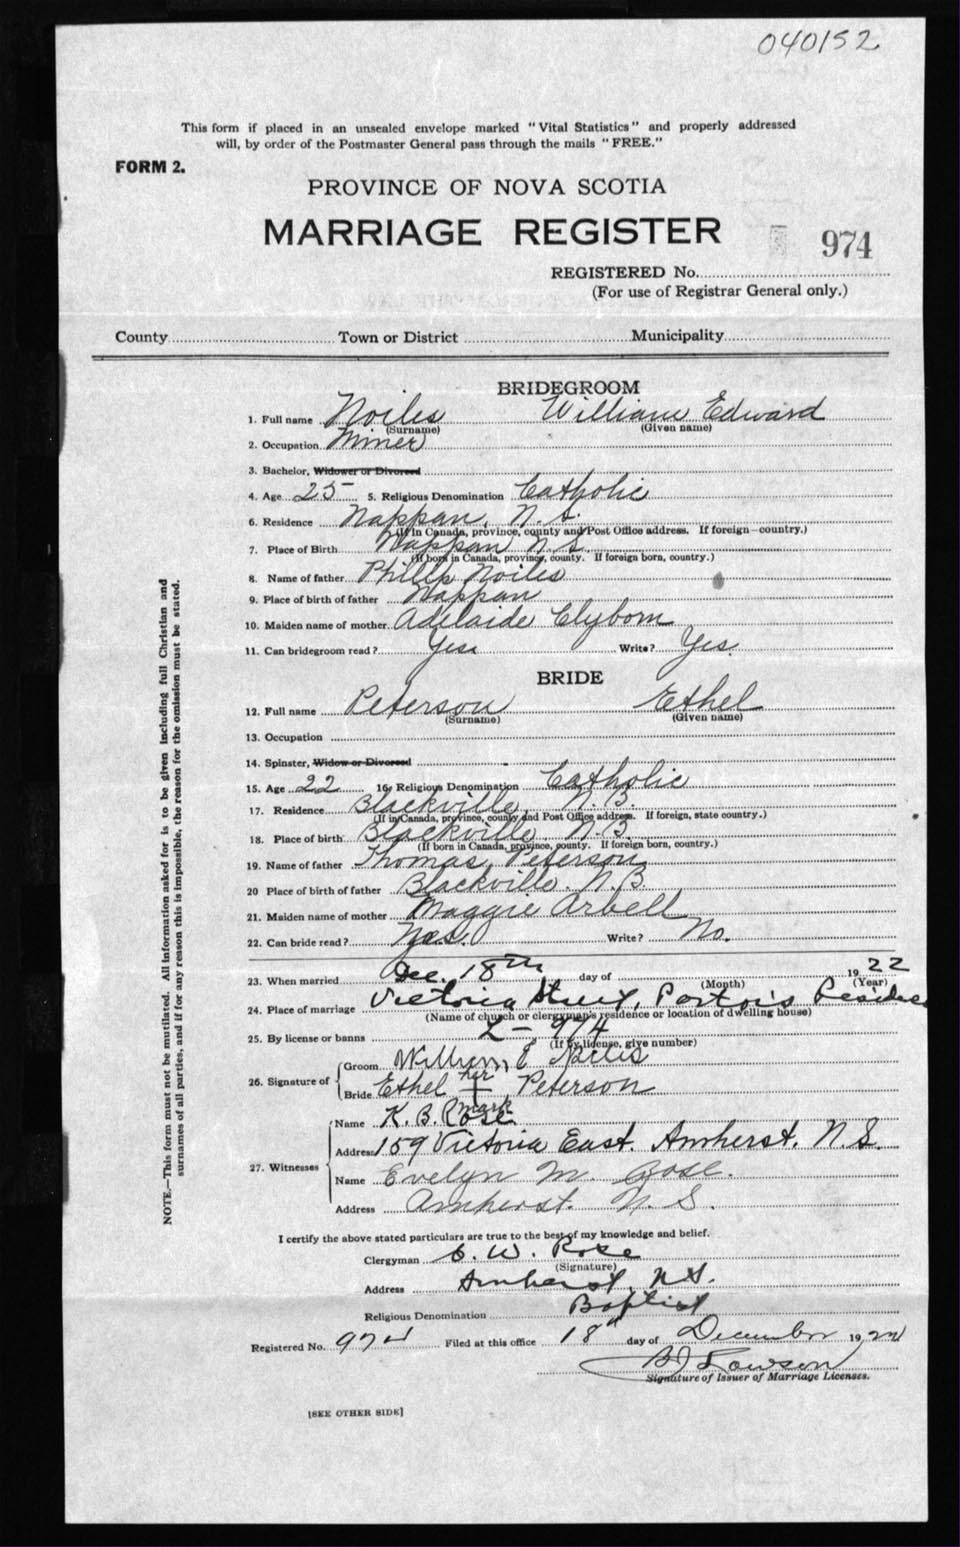 040152
This form if placed in an unsealed envelope marked "Vital Statistics" and properly addressed
will, by order of the Postmaster General pass through the mails "FREE."
FORM 2.
PROVINCE OF NOVA SCOTIA
MARRIAGE REGISTER
974
REGISTERED No.
(For use of Registrar General only.)
County Town or District Municipality
BRIDEGROOM
1. Full name Noiles William Edward
(Surname) (Given name)
2. Occupation Miner
3. Bachelor, Widower or Divorced
4. Age 25 5. Religious Denomination Catholic
6. Residence Nappan, N.S.
(If in Canada, province, county and Post Office address. If foreign—country.)
7. Place of Birth Nappan N.S.
(If born in Canada, province, county. If foreign born, country.)
8. Name of father Philip Noiles
9. Place of birth of father Nappan
10. Maiden name of mother Adelaide Clyborn
11. Can bridegroom read? Yes. Write? Yes.
BRIDE
12. Full name Peterson Ethel
(Surname) (Given name)
13. Occupation
14. Spinster, Widow or Divorced
15. Age 22 16. Religious Denomination Catholic
17. Residence Blackville, N.B.
(If in Canada, province, county and Post Office address. If foreign, state country.)
18. Place of birth Blackville N.B
(If born in Canada, province, county. If foreign born, country.)
19. Name of father Thomas Peterson
20 Place of birth of father Blackville. N.B.
21. Maiden name of mother Maggie Arbell
22. Can bride read? Write? No.
23. When married Dec. 18th day of 1922
(Month) (Year)
24. Place of marriage Victoria Street, Residence
(Name of church or clergyman's residence or location of dwelling house)
25. By license or banns L - 974
(If by license, give number)
26. Signature of Groom William E Noiles
Bride Ethel her + mark Peterson
27. Witnesses Name K. B. Rose
Address 159 Victoria East. Amherst. N.S.
Name Evelyn M. Rose.
Address Amherst. N.S.
I certify the above stated particulars are true to the best of my knowledge and belief.
Clergyman W. Rose
(Signature)
Address Amherst, N.S.
Religious Denomination Baptist
Registered No. 974 Filed at this office 18th day of December 1922
Lowson
Signature of Issuer of Marriage Licenses.
[SEE OTHER SIDE]
NOTE.—This form must not be mutilated. All information asked for is to be given including full Christian and
surnames of all parties, and if for any reason this is impossible, the reason for the omission must be stated.